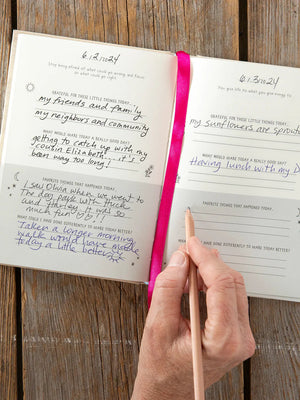 6.12.24
Stop being afraid of what could go wrong, and focus
on what could go right.
GRATEFUL FOR THESE LITTLE THINGS TODAY...
my friends and family
my neighbors and community
WHAT WOULD MAKE TODAY A REALLY GOOD DAY?
getting to catch up with my
cousin Elizabeth... it's
been way too long!
FAVORITE THINGS THAT HAPPENED TODAY...
I saw Olivia when we went to
the dog park with Tucker
and Harley. It was so
much fun
WHAT COULD I HAVE DONE DIFFERENTLY TO MAKE TODAY BETTER?
Taken a longer morning
walk would have made
today a little better
6.13.24
You give life to what you give energy to.
GRATEFUL FOR THESE LITTLE THINGS TODAY...
my sunflowers are sprouti
WHAT WOULD MAKE TODAY A REALLY GOOD DAY?
Having lunch with my D
FAVORITE THINGS THAT HAPPENED TODAY...
WHAT COULD I HAVE DONE DIFFERENTLY TO MAKE TODAY BETTER?